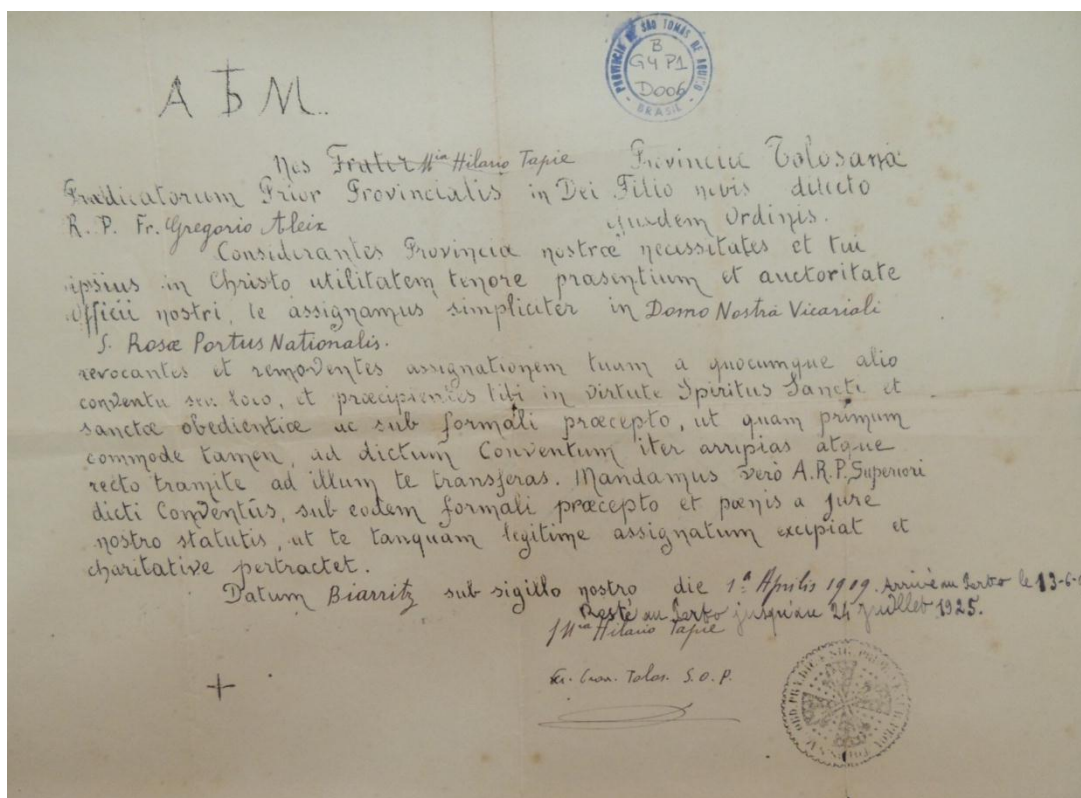 PROVINCIA DE SÃO TOMÁS DE AQUINO - BRASIL -
B
G4 P1
D006
A M.
Nos Frater Mia Hilario Tapie Provinciæ Tolosanæ
Prædicatorum Prior Provincialis in Dei Filio nobis dilecto
R. P. Fr. Gregorio Aleix ejusdem Ordinis.
Considerantes Provinciæ nostræ necessitates et tui
ipsius in Christo utilitatem, tenore præsentium et auctoritate
officii nostri, te assignamus simpliciter in Domo Nostra Vicariali
S. Rosæ Portus Nationalis.
revocantes et removentes assignationem tuam a quocumque alio
conventu seu loco, et præcipientes tibi in virtute Spiritus Sancti et
sanctæ obedientiæ ac sub formali præcepto, ut quam primum
commode tamen, ad dictum Conventum iter arripias atque
recto tramite ad illum te transferas. Mandamus verò A.R.P. Superiori
dicti Conventûs, sub eodem formali præcepto et pœnis a jure
nostro statutis, ut te tanquam legitime assignatum excipiat et
charitative pertractet.
Datum Biarritz sub sigillo nostro die 1ª Aprilis 1919. Arrivé au Porto le 13-6-
Resté au Porto jusqu'au 24 juillet 1925.
f Mia Hilario Tapie
Tolos. S. O. P.